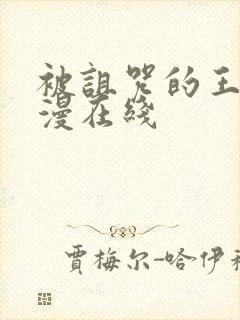 被詛咒的王
漫在綫
賈梅尔-哈伊利